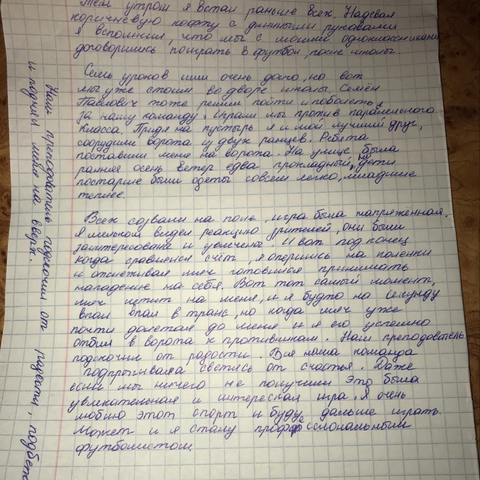 Тем утром я встал раньше всех. Надевая
коричневую кофту с длинными рукавами
я вспомнил, что мы с моими одноклассниками
договорились поиграть в футбол, после школы.
Семь уроков шли очень долго, но вот
мы уже стоим во дворе школы. Семён
Павлович тоже решил пойти и поболеть
за нашу команду. Играли мы против параллельного
класса. Придя на пустырь я и мой лучший друг,
соорудили ворота из двух ранцев. Ребята
поставили меня на ворота. На улице была
ранняя осень ветер едва прохладный, дети
постарше были одеты совсем легко, младшие
теплее.
Всех созвали на поле, игра была напряженная,
я мельком видел реакцию зрителей, они были
заинтересованы и увлечены. И вот под конец
когда сравнялся счёт, я опершись на коленки
и отслеживая мяч готовился принимать
нападение на себя. Вот тот самый момент,
мяч летит на меня, и я будто на секунду
впал в транс, но когда мяч уже
почти долетел до меня и я его успешно
отбил в ворота к противникам. Наш преподаватель
подскочил от радости. Вся наша команда
подпрыгивала светясь от счастья. Даже
если мы ничего не получили это была
увлекательная и интересная игра, я очень
люблю этот спорт и буду дальше играть.
Может и я стану професслональным
футболистом.
Наш преподаватель подскочил от радости, подбежал
и поднял меня на вверх.